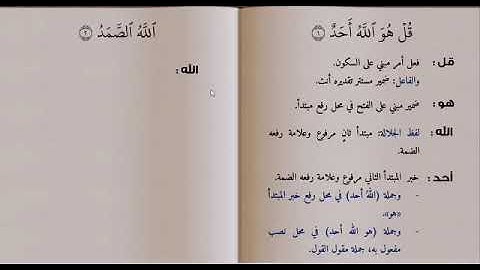 قُلْ هُوَ ٱللَّهُ أَحَدٌ ١
قل: فعل أمر مبني على السكون.
والفاعل: ضمير مستتر تقديره أنت.
هو: ضمير مبني على الفتح في محل رفع مبتدأ.
الله: لفظ الجلالة: مبتدأ ثانٍ مرفوع وعلامة رفعه
الضمة.
أحد: خبر المبتدأ الثاني مرفوع وعلامة رفعه الضمة.
- وجملة (اللهُ أحد) في محل رفع خبر المبتدأ
«هو».
- وجملة (هو الله أحد) في محل نصب
مفعول به، جملة مقول القول.
ٱللَّهُ ٱلصَّمَدُ ٢
الله: